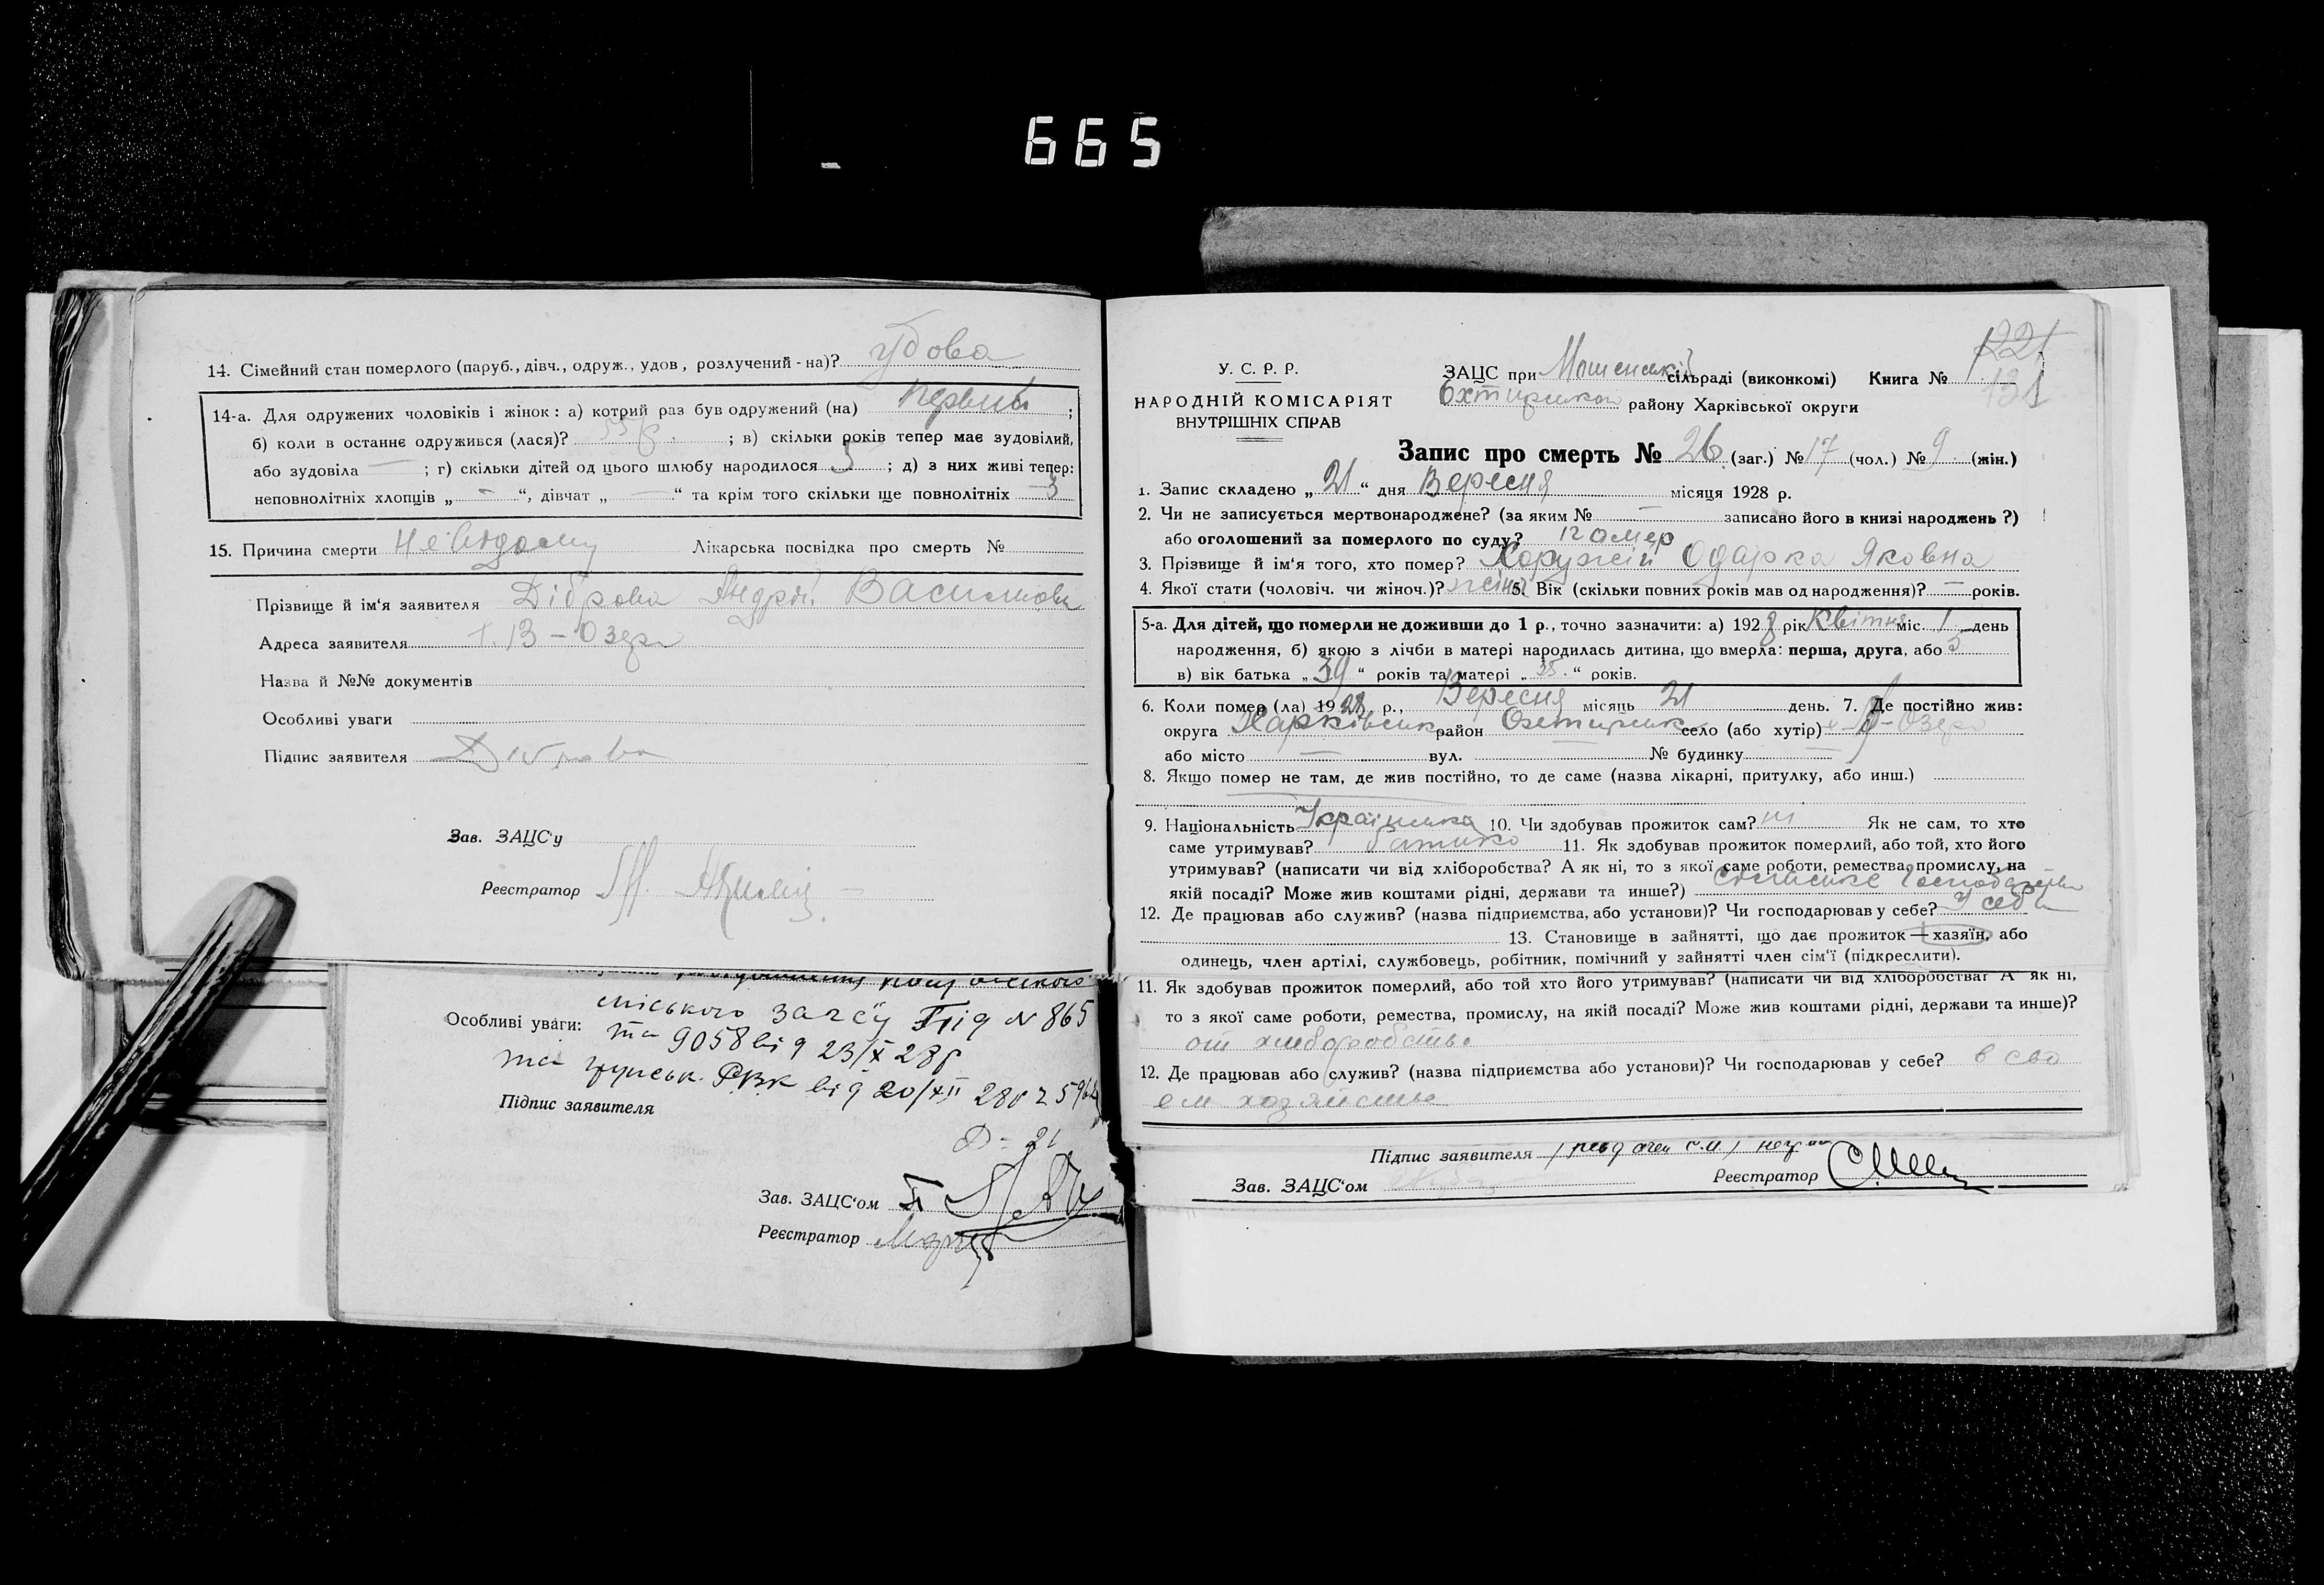 665
14. Сімейний стан померлого (паруб., дівч., одруж., удов, розлучений - на)? удова
14-а. Для одружених чоловіків і жінок: а) котрий раз був одружений (на) первий ;
б) коли в останнє одружився (лася)? 55 р. ; в) скільки років тепер має зудовілий,
або зудовіла — ; г) скільки дітей од цього шлюбу народилося 5 ; д) з них живі тепер:
неповнолітніх хлопців „ - “, дівчат „ — “ та крім того скільки ще повнолітніх 3
15. Причина смерти невідому Лікарська посвідка про смерть №
Прізвище й ім‘я заявителя Діброва Андрій
Адреса заявителя Озеро
Назва й №№ документів
Особливі уваги
Підпис заявителя Діброва
Зав. ЗАЦС‘у
Реєстратор
Особливі уваги: міського загсу під № 865
та 9058 від 23/X 28р
та РВК від 20/XII 28р
Підпис заявителя
Зав. ЗАЦС‘ом
Реєстратор
221
131
У. С. Р. Р.
НАРОДНІЙ КОМІСАРІЯТ
ВНУТРІШНІХ СПРАВ
ЗАЦС при Мошенській сільраді (виконкомі) Книга №
Охтирском району Харківської округи
Запис про смерть № 26 (заг.) № 17 (чол.) № 9 (жін.)
1. Запис складено „ 21 “ дня Вересня місяця 1928 р.
2. Чи не записується мертвонароджене? (за яким № — записано його в книзі народжень ?)
або оголошений за померлого по суду? помер
3. Прізвище й ім‘я того, хто помер? Хоружій Одарка Яковна
4. Якої стати (чоловіч. чи жіноч.)? жіноч 5. Вік (скільки повних років мав од народження)? — років.
5-а. Для дітей, що померли не доживши до 1 р., точно зазначити: а) 1928 рік Квітня міс. 1 день
народження, б) якою з лічби в матері народилась дитина, що вмерла: перша, друга, або 5
в) вік батька „ 39 “ років та матері „ 38 “ років.
6. Коли помер (ла) 1928 р., Вересня місяць 21 день. 7. Де постійно жив:
округа Харківськ район Охтирськ село (або хутір) Озеро
або місто — вул. — № будинку —
8. Якщо помер не там, де жив постійно, то де саме (назва лікарні, притулку, або инш.)
9. Національність Українська 10. Чи здобував прожиток сам? ні Як не сам, то хто
саме утримував? батько 11. Як здобував прожиток померлий, або той, хто його
утримував? (написати чи від хліборобства? А як ні, то з якої саме роботи, ремества, промислу, на
якій посаді? Може жив коштами рідні, держави та инше?) сільське господарство
12. Де працював або служив? (назва підприємства, або установи)? Чи господарював у себе? У себе
13. Становище в зайнятті, що дає прожиток — хазяїн, або
одинець, член артілі, службовець, робітник, помічний у зайнятті член сім‘ї (підкреслити).
11. Як здобував прожиток померлий, або той хто його утримував? (написати чи від хліборобства? А як ні,
то з якої саме роботи, ремества, промислу, на якій посаді? Може жив коштами рідні, держави та инше)?
от хлеборобства
12. Де працював або служив? (назва підприємства або установи)? Чи господарював у себе? в сво
ем хозяистве
Підпис заявителя
Зав. ЗАЦС‘ом Реєстратор